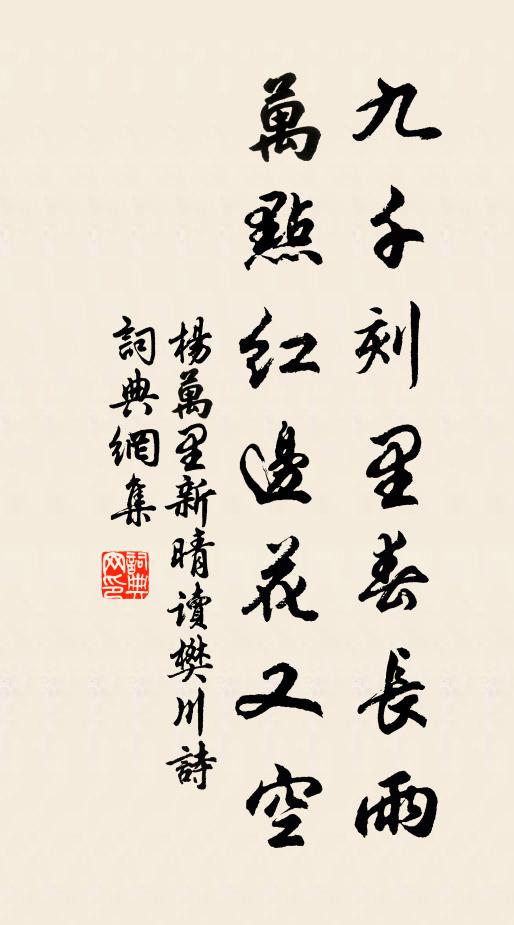 九千刻里春長雨
萬點紅邊花又空
楊萬里新晴讀樊川詩
詞典網集
詞典网印